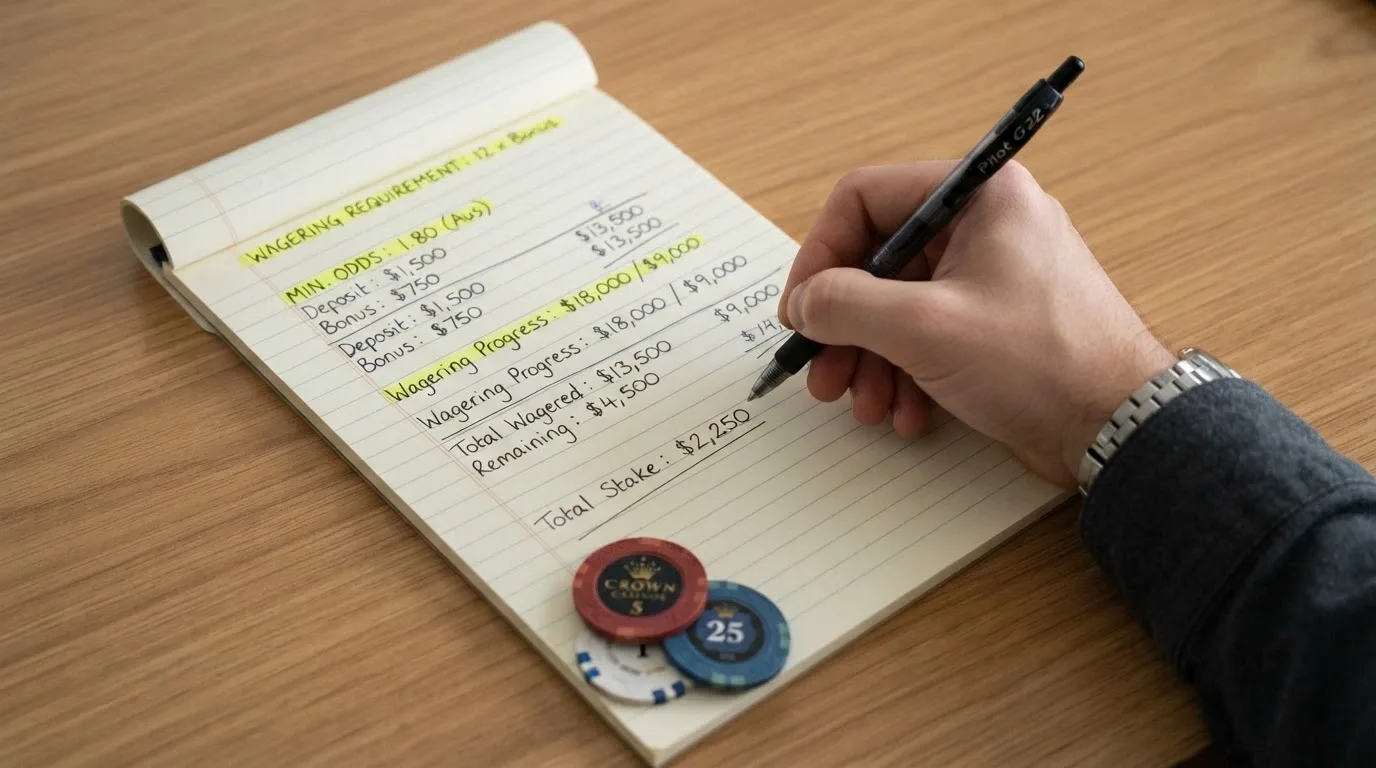 WAGERING REQUIREMENT: 12 x Bonus
MIN. ODDS: 1.80 (Aus)
Deposit: $1,500 $13,500
Bonus: $750 $13,500
Deposit: $1,500
Bonus: $750
Wagering Progress: $18,000 / $9,000
Wagering Progress: $18,000 / $9,000
Total Wagered: $13,500 $9,000
Remaining: $4,500
Total Stake: $2,250
Pilot G2
CROWN
5
25
1